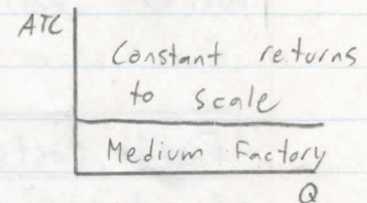 ATC
Constant returns
to scale
Medium Factory
Q